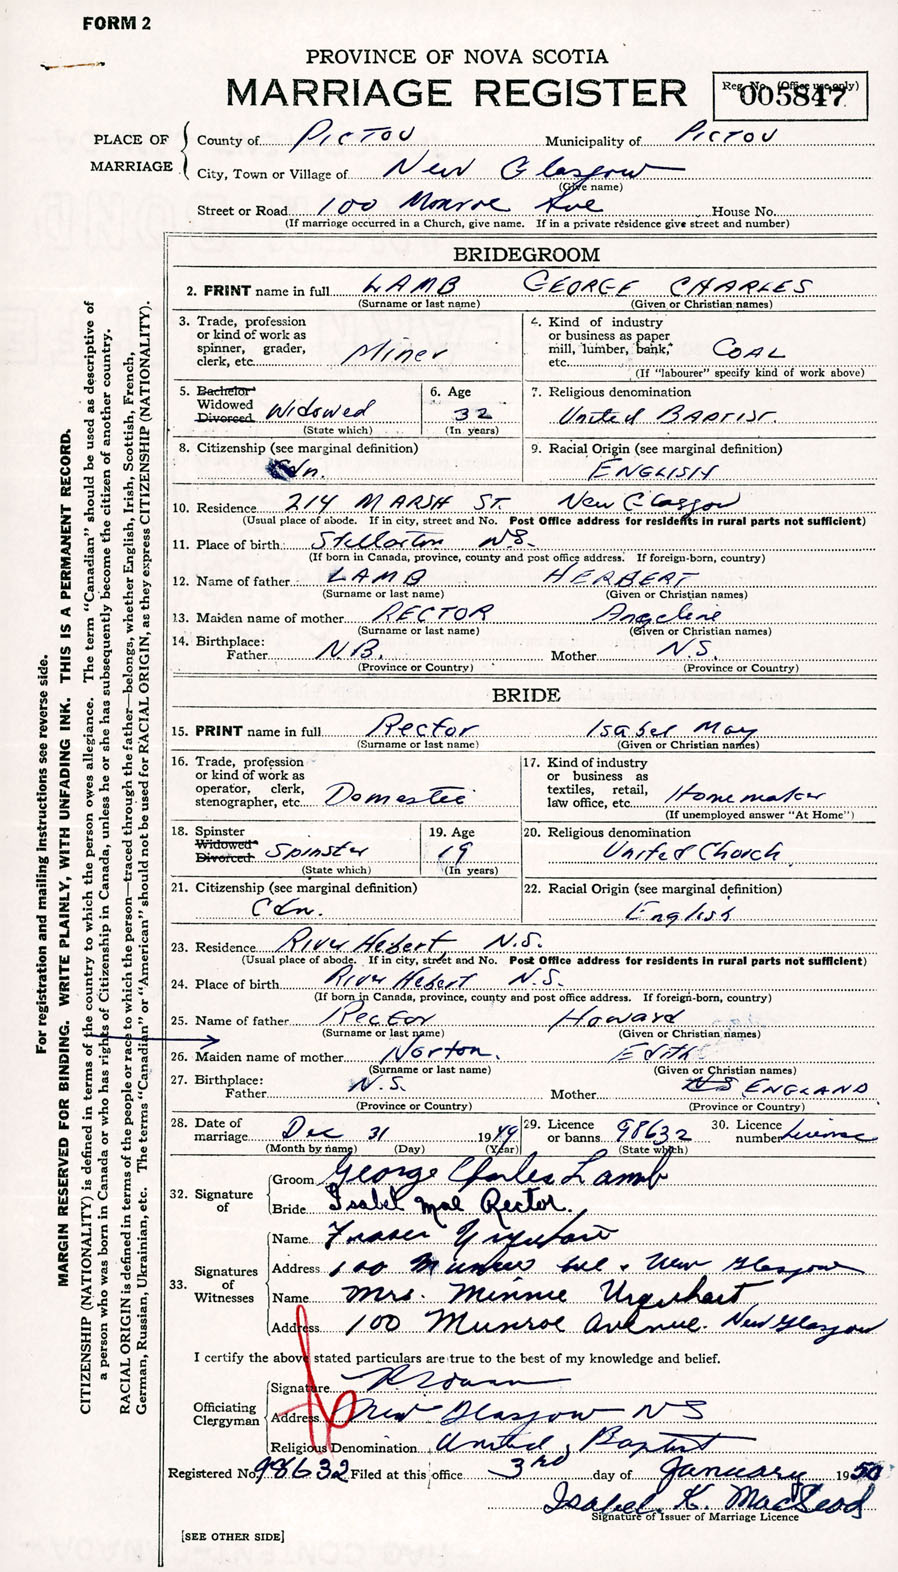 FORM 2
PROVINCE OF NOVA SCOTIA
MARRIAGE REGISTER
Reg. No. (Office use only)
005847
PLACE OF MARRIAGE
County of PICTOU Municipality of PICTOU
City, Town or Village of New Glasgow
(Give name)
Street or Road 100 Monroe Ave House No.
(If marriage occurred in a Church, give name. If in a private residence give street and number)
BRIDEGROOM
2. PRINT name in full LAMB GEORGE CHARLES
(Surname or last name) (Given or Christian names)
3. Trade, profession or kind of work as spinner, grader, clerk, etc. Miner
4. Kind of industry or business as paper mill, lumber, bank, etc. COAL
(If "labourer" specify kind of work above)
5. Bachelor Widowed Divorced Widowed
(State which)
6. Age 32
(In years)
7. Religious denomination
United BAPTIST.
8. Citizenship (see marginal definition)
Cdn.
9. Racial Origin (see marginal definition)
ENGLISH
10. Residence 214 MARSH ST. New Glasgow
(Usual place of abode. If in city, street and No. Post Office address for residents in rural parts not sufficient)
11. Place of birth: Stellarton N.S.
(If born in Canada, province, county and post office address. If foreign-born, country)
12. Name of father LAMB HERBERT
(Surname or last name) (Given or Christian names)
13. Maiden name of mother RECTOR Angeline
(Surname or last name) (Given or Christian names)
14. Birthplace:
Father N.B. Mother N.S.
(Province or Country) (Province or Country)
BRIDE
15. PRINT name in full Rector Isabel May
(Surname or last name) (Given or Christian names)
16. Trade, profession or kind of work as operator, clerk, stenographer, etc. Domestic
17. Kind of industry or business as textiles, retail, law office, etc. Homemaker
(If unemployed answer "At Home")
18. Spinster Widowed Divorced Spinster
(State which)
19. Age 19
(In years)
20. Religious denomination
United Church
21. Citizenship (see marginal definition)
Cdn.
22. Racial Origin (see marginal definition)
English
23. Residence River Hebert, N.S.
(Usual place of abode. If in city, street and No. Post Office address for residents in rural parts not sufficient)
24. Place of birth River Hebert N.S.
(If born in Canada, province, county and post office address. If foreign-born, country)
25. Name of father Rector Howard
(Surname or last name) (Given or Christian names)
26. Maiden name of mother Norton. Edith
(Surname or last name) (Given or Christian names)
27. Birthplace:
Father N.S. Mother NS ENGLAND
(Province or Country) (Province or Country)
28. Date of marriage Dec 31 1949
(Month by name) (Day) (Year)
29. Licence or banns 98632
(State which)
30. Licence number License
32. Signature of
Groom George Charles Lamb
Bride Isabel Mae Rector.
33. Signatures of Witnesses
Name Fraser Urquhart
Address 100 Munroe Ave. New Glasgow
Name Mrs. Minnie Urquhart
Address 100 Munroe Avenue. New Glasgow
I certify the above stated particulars are true to the best of my knowledge and belief.
Officiating Clergyman
Signature
Address New Glasgow NS
Religious Denomination United Baptist
Registered No. 98632 Filed at this office 3rd day of January 1950
Isabel K. MacLeod
Signature of Issuer of Marriage Licence
[SEE OTHER SIDE]
For registration and mailing instructions see reverse side.
MARGIN RESERVED FOR BINDING. WRITE PLAINLY, WITH UNFADING INK. THIS IS A PERMANENT RECORD.
CITIZENSHIP (NATIONALITY) is defined in terms of the country to which the person owes allegiance. The term "Canadian" should be used as descriptive of
a person who was born in Canada or who has rights of Citizenship in Canada, unless he or she has subsequently become the citizen of another country.
RACIAL ORIGIN is defined in terms of the people or race to which the person—traced through the father—belongs, whether English, Irish, Scottish, French,
German, Russian, Ukrainian, etc. The terms "Canadian" or "American" should not be used for RACIAL ORIGIN, as they express CITIZENSHIP (NATIONALITY).